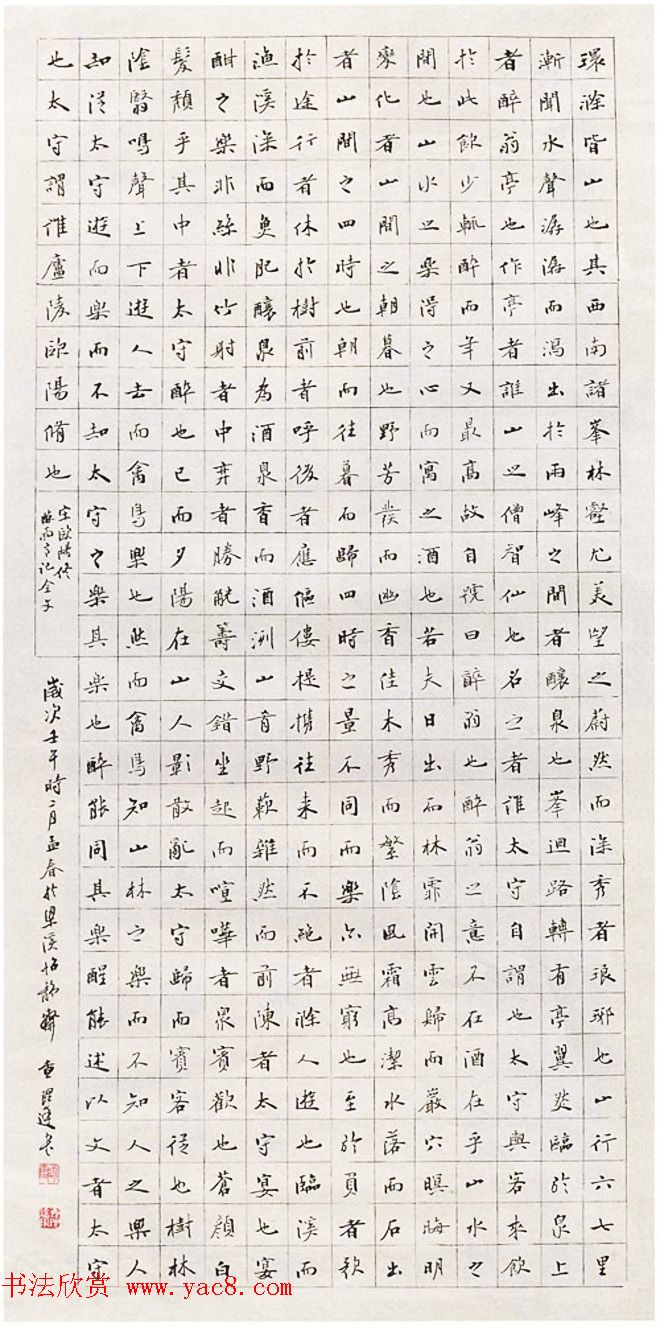 環滁皆山也其西南諸峯林壑尤美望之蔚然而深秀者琅琊也山行六七里
漸聞水聲潺潺而瀉出於兩峰之間者釀泉也峯迴路轉有亭翼然臨於泉上
者醉翁亭也作亭者誰山之僧智仙也名之者誰太守自謂也太守與客來飲
於此飲少輒醉而年又最高故自號曰醉翁也醉翁之意不在酒在乎山水之
間也山水之樂得之心而寓之酒也若夫日出而林霏開雲歸而巖穴暝晦明
變化者山間之朝暮也野芳發而幽香佳木秀而繁陰風霜高潔水落而石出
者山間之四時也朝而往暮而歸四時之景不同而樂亦無窮也至於負者歌
於途行者休於樹前者呼後者應傴僂提攜往來而不絕者滁人遊也臨溪而
漁溪深而魚肥釀泉為酒泉香而酒洌山肴野蔌雜然而前陳者太守宴也宴
酣之樂非絲非竹射者中弈者勝觥籌交錯坐起而喧嘩者眾賓歡也蒼顏白
髮頹乎其中者太守醉也已而夕陽在山人影散亂太守歸而賓客從也樹林
陰翳鳴聲上下遊人去而禽鳥樂也然而禽鳥知山林之樂而不知人之樂人
知從太守遊而樂而不知太守之樂其樂也醉能同其樂醒能述以文者太守
也太守謂誰廬陵歐陽脩也
宋歐陽修
醉翁亭記全文
歲次壬午時二月孟春於
书法欣赏 www.yac8.com